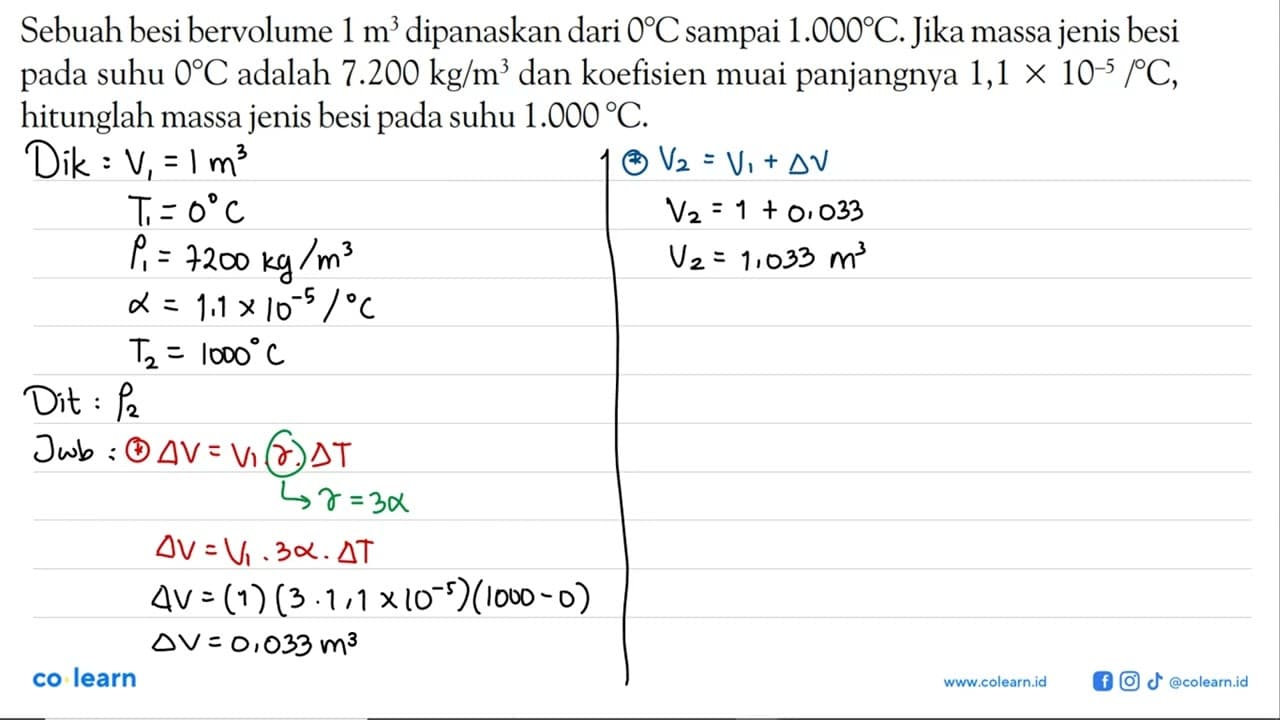 Sebuah besi bervolume 1 m³ dipanaskan dari 0°C sampai 1.000°C. Jika massa jenis besi
pada suhu 0°C adalah 7.200 kg/m³ dan koefisien muai panjangnya 1,1 × 10⁻⁵ /°C,
hitunglah massa jenis besi pada suhu 1.000 °C.
Dik : V₁ = 1 m³
T₁ = 0°C
ρ₁ = 7200 kg/m³
α = 1,1 × 10⁻⁵ /°C
T₂ = 1000°C
Dit : ρ₂
Jwb : * ΔV = V₁ γ. ΔT
↳ γ = 3α
ΔV = V₁ . 3α . ΔT
ΔV = (1) (3 . 1,1 × 10⁻⁵)(1000 - 0)
ΔV = 0,033 m³
* V₂ = V₁ + ΔV
V₂ = 1 + 0,033
V₂ = 1,033 m³
co learn
www.colearn.id
@colearn.id